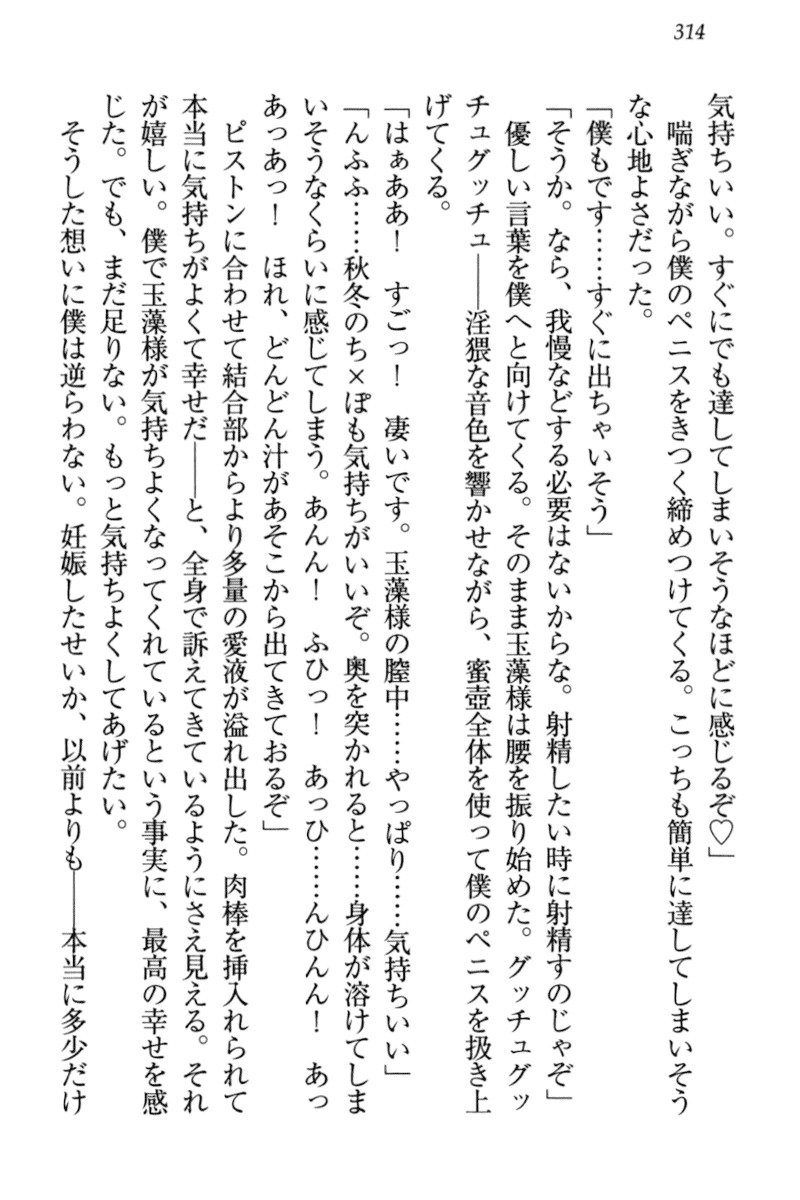 314
気持ちいい。すぐにでも達してしまいそうなほどに感じるぞ♡」
　喘ぎながら僕のペニスをきつく締めつけてくる。こっちも簡単に達してしまいそう
な心地よさだった。
「僕もです……すぐに出ちゃいそう」
「そうか。なら、我慢などする必要はないからな。射精したい時に射精すのじゃぞ」
　優しい言葉を僕へと向けてくる。そのまま玉藻様は腰を振り始めた。グッチュグッ
チュグッチュ――淫猥な音色を響かせながら、蜜壺全体を使って僕のペニスを扱き上
げてくる。
「はぁああ！　すごっ！　凄いです。玉藻様の膣中……やっぱり……気持ちいい」
「んふふ……秋冬のち×ぽも気持ちがいいぞ。奥を突かれると……身体が溶けてしま
いそうなくらいに感じてしまう。あんん！　ふひっ！　あっひ……んひんん！　あっ
あっあっ！　ほれ、どんどん汁があそこから出てきておるぞ」
　ピストンに合わせて結合部からより多量の愛液が溢れ出した。肉棒を挿入れられて
本当に気持ちがよくて幸せだ――と、全身で訴えてきているようにさえ見える。それ
が嬉しい。僕で玉藻様が気持ちよくなってくれているという事実に、最高の幸せを感
じた。でも、まだ足りない。もっと気持ちよくしてあげたい。
　そうした想いに僕は逆らわない。妊娠したせいか、以前よりも――本当に多少だけ